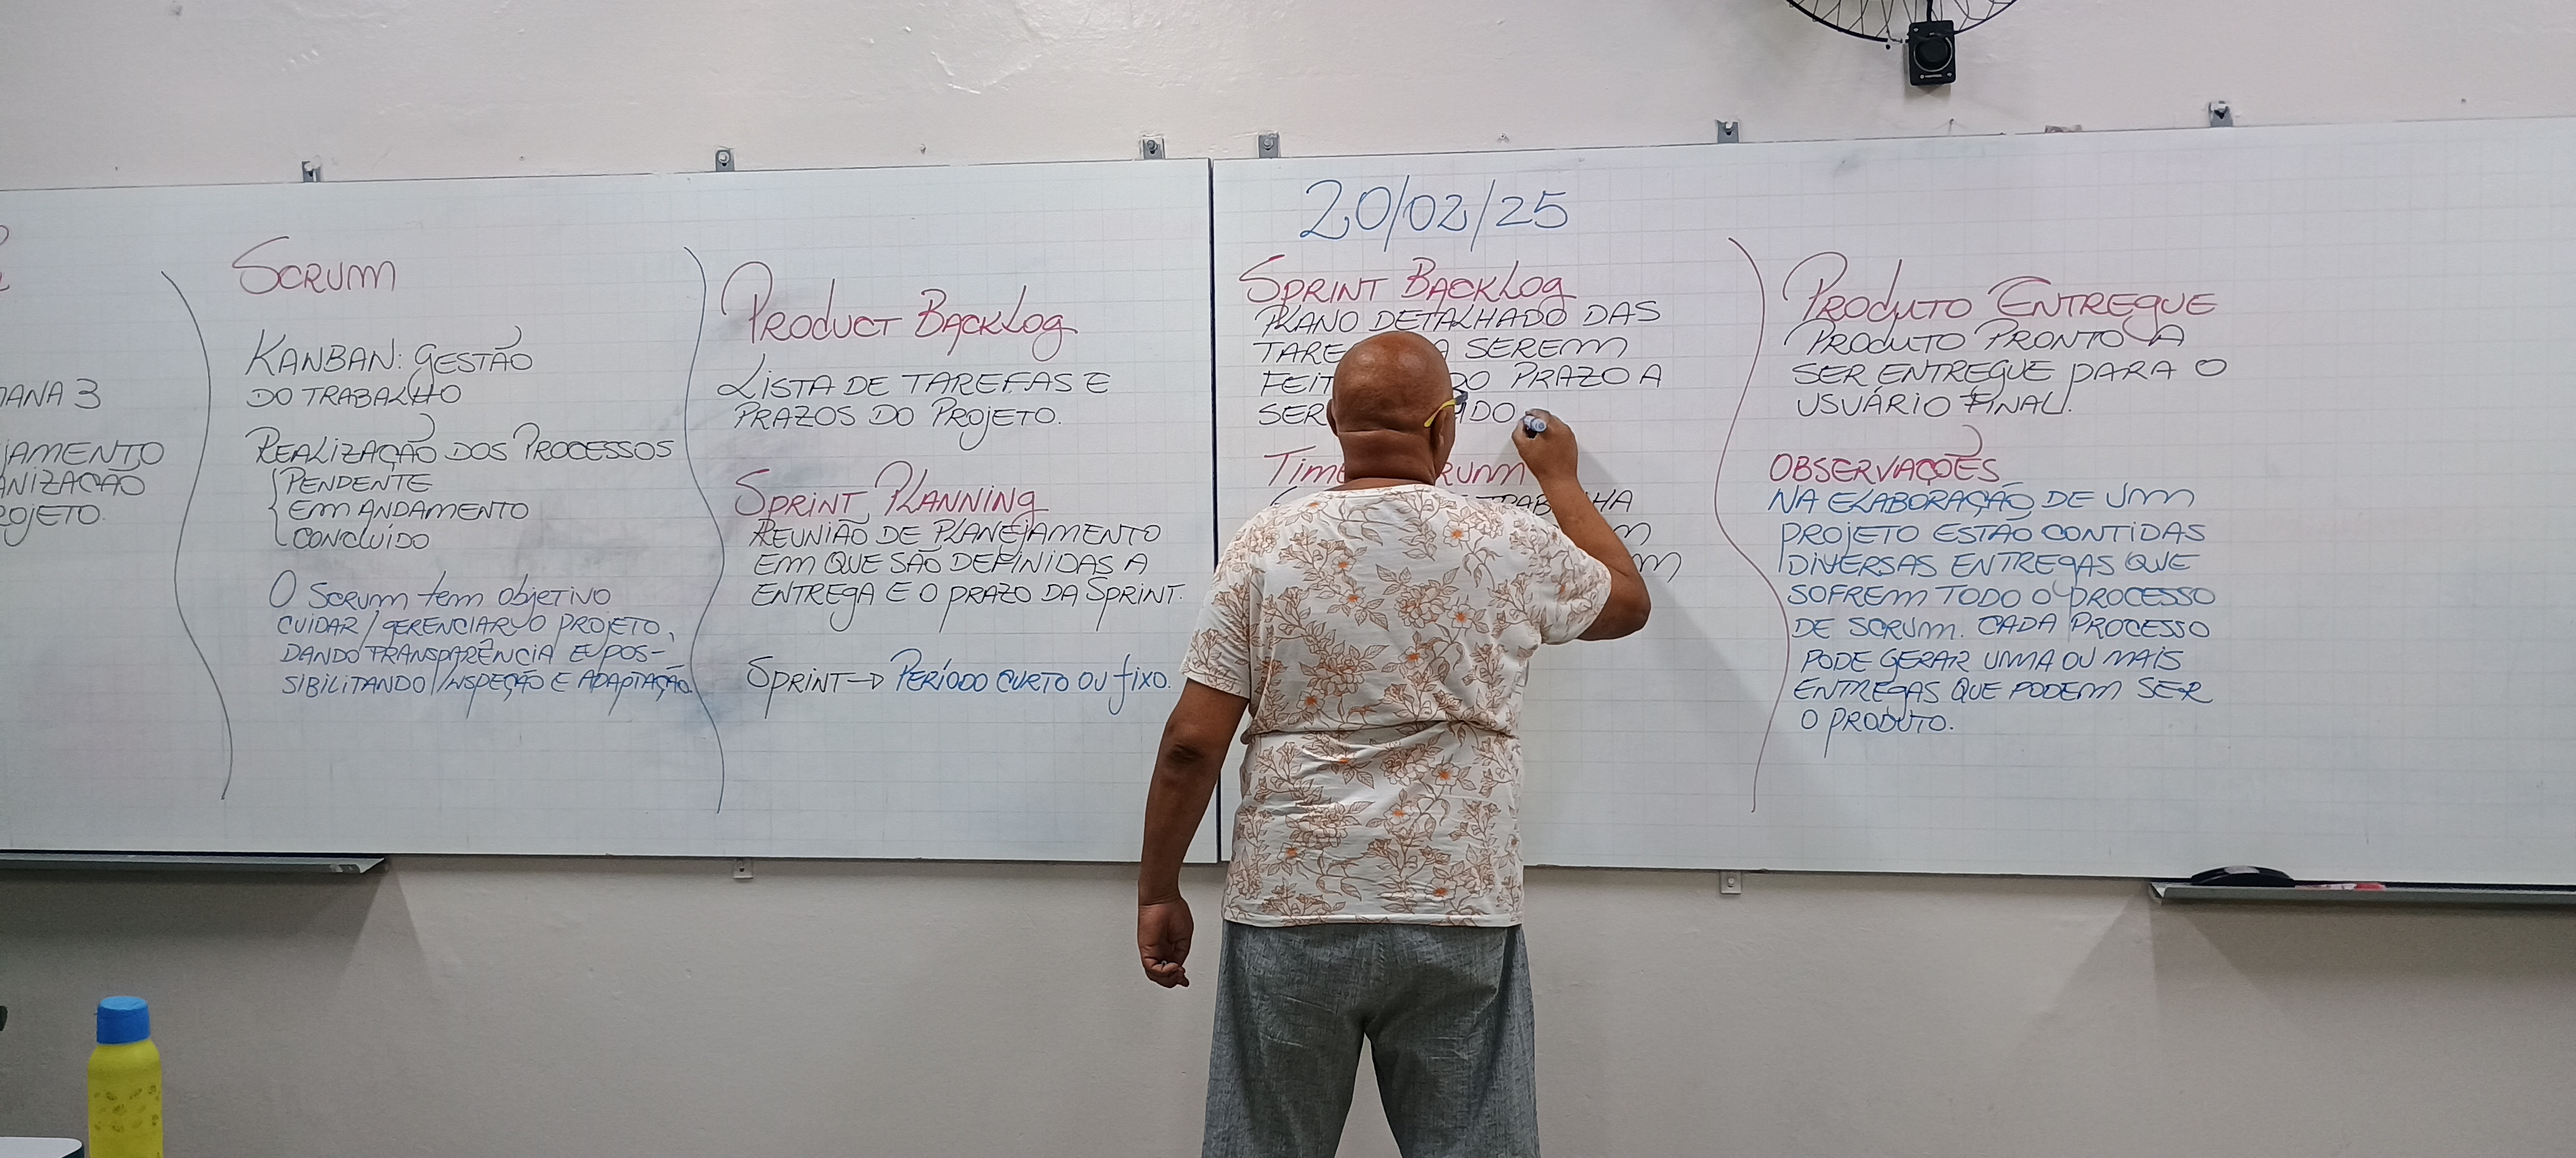 ANA 3
JAMENTO
ANIZAÇÃO
ROJETO.
SCRUM
KANBAN: GESTÃO
DO TRABALHO
REALIZAÇÃO DOS PROCESSOS
PENDENTE
EM ANDAMENTO
CONCLUÍDO
O SCRUM tem objetivo
CUIDAR/GERENCIAR O PROJETO,
DANDO TRANSPARÊNCIA E POS-
SIBILITANDO INSPEÇÃO E ADAPTAÇÃO.
PRODUCT BACKLOG
LISTA DE TAREFAS E
PRAZOS DO PROJETO.
SPRINT PLANNING
REUNIÃO DE PLANEJAMENTO
EM QUE SÃO DEFINIDAS A
ENTREGA E O PRAZO DA SPRINT.
SPRINT → PERÍODO CURTO OU fIXO.
20/02/25
SPRINT BACKLOG
PLANO DETALHADO DAS
TARE A SEREM
FEIT DO PRAZO A
SER ADO
TIME RUM
TRABALHA
M
M
PRODUTO ENTREGUE
PRODUTO PRONTO A
SER ENTREGUE PARA O
USUÁRIO FINAL.
OBSERVAÇÕES
NA ELABORAÇÃO DE UM
PROJETO ESTÃO CONTIDAS
DIVERSAS ENTREGAS QUE
SOFREM TODO O PROCESSO
DE SCRUM. CADA PROCESSO
PODE GERAR UMA OU MAIS
ENTREGAS QUE PODEM SER
O PRODUTO.